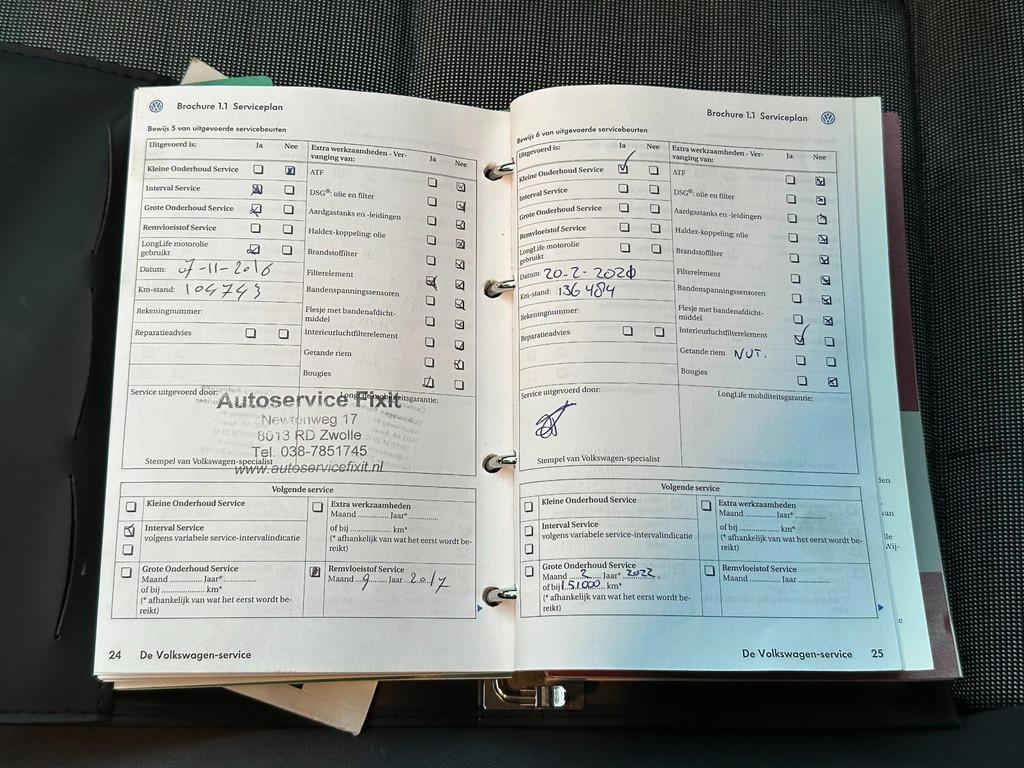 Brochure 1.1 Serviceplan
Bewijs 5 van uitgevoerde servicebeurten
Uitgevoerd is: Ja Nee
Kleine Onderhoud Service
Interval Service
Grote Onderhoud Service
Remvloeistof Service
LongLife motorolie
gebruikt
Datum: 07-11-2016
Km-stand: 104743
Rekeningnummer:
Reparatieadvies
Extra werkzaamheden - Ver-
vanging van: Ja Nee
ATF
DSG®: olie en filter
Aardgastanks en -leidingen
Haldex-koppeling: olie
Brandstoffilter
Filterelement
Bandenspanningssensoren
Flesje met bandenafdicht-
middel
Interieurluchtfilterelement
Getande riem
Bougies
Service uitgevoerd door:
LongLife mobiliteitsgarantie:
Autoservice Fixit
Newtonweg 17
8013 RD Zwolle
Tel. 038-7851745
www.autoservicefixit.nl
Stempel van Volkswagen-specialist
Volgende service
Kleine Onderhoud Service
Interval Service
volgens variabele service-intervalindicatie
Grote Onderhoud Service
Maand ........... Jaar* ...........
of bij ............... km*
(* afhankelijk van wat het eerst wordt be-
reikt)
Extra werkzaamheden
Maand ........... Jaar* ...........
of bij ............... km*
(* afhankelijk van wat het eerst wordt be-
reikt)
Remvloeistof Service
Maand 9 Jaar 2017
24 De Volkswagen-service
Brochure 1.1 Serviceplan
Bewijs 6 van uitgevoerde servicebeurten
Uitgevoerd is: Ja Nee
Kleine Onderhoud Service
Interval Service
Grote Onderhoud Service
Remvloeistof Service
LongLife motorolie
gebruikt
Datum: 20-2-2020
Km-stand: 136 484
Rekeningnummer:
Reparatieadvies
Extra werkzaamheden - Ver-
vanging van: Ja Nee
ATF
DSG®: olie en filter
Aardgastanks en -leidingen
Haldex-koppeling: olie
Brandstoffilter
Filterelement
Bandenspanningssensoren
Flesje met bandenafdicht-
middel
Interieurluchtfilterelement
Getande riem NVT.
Bougies
Service uitgevoerd door:
LongLife mobiliteitsgarantie:
Stempel van Volkswagen-specialist
Volgende service
Kleine Onderhoud Service
Interval Service
volgens variabele service-intervalindicatie
Grote Onderhoud Service
Maand 2 Jaar* 2022.
of bij 151000 km*
(* afhankelijk van wat het eerst wordt be-
reikt)
Extra werkzaamheden
Maand ........... Jaar* ...........
of bij ............... km*
(* afhankelijk van wat het eerst wordt be-
reikt)
Remvloeistof Service
Maand ........... Jaar ...........
De Volkswagen-service 25